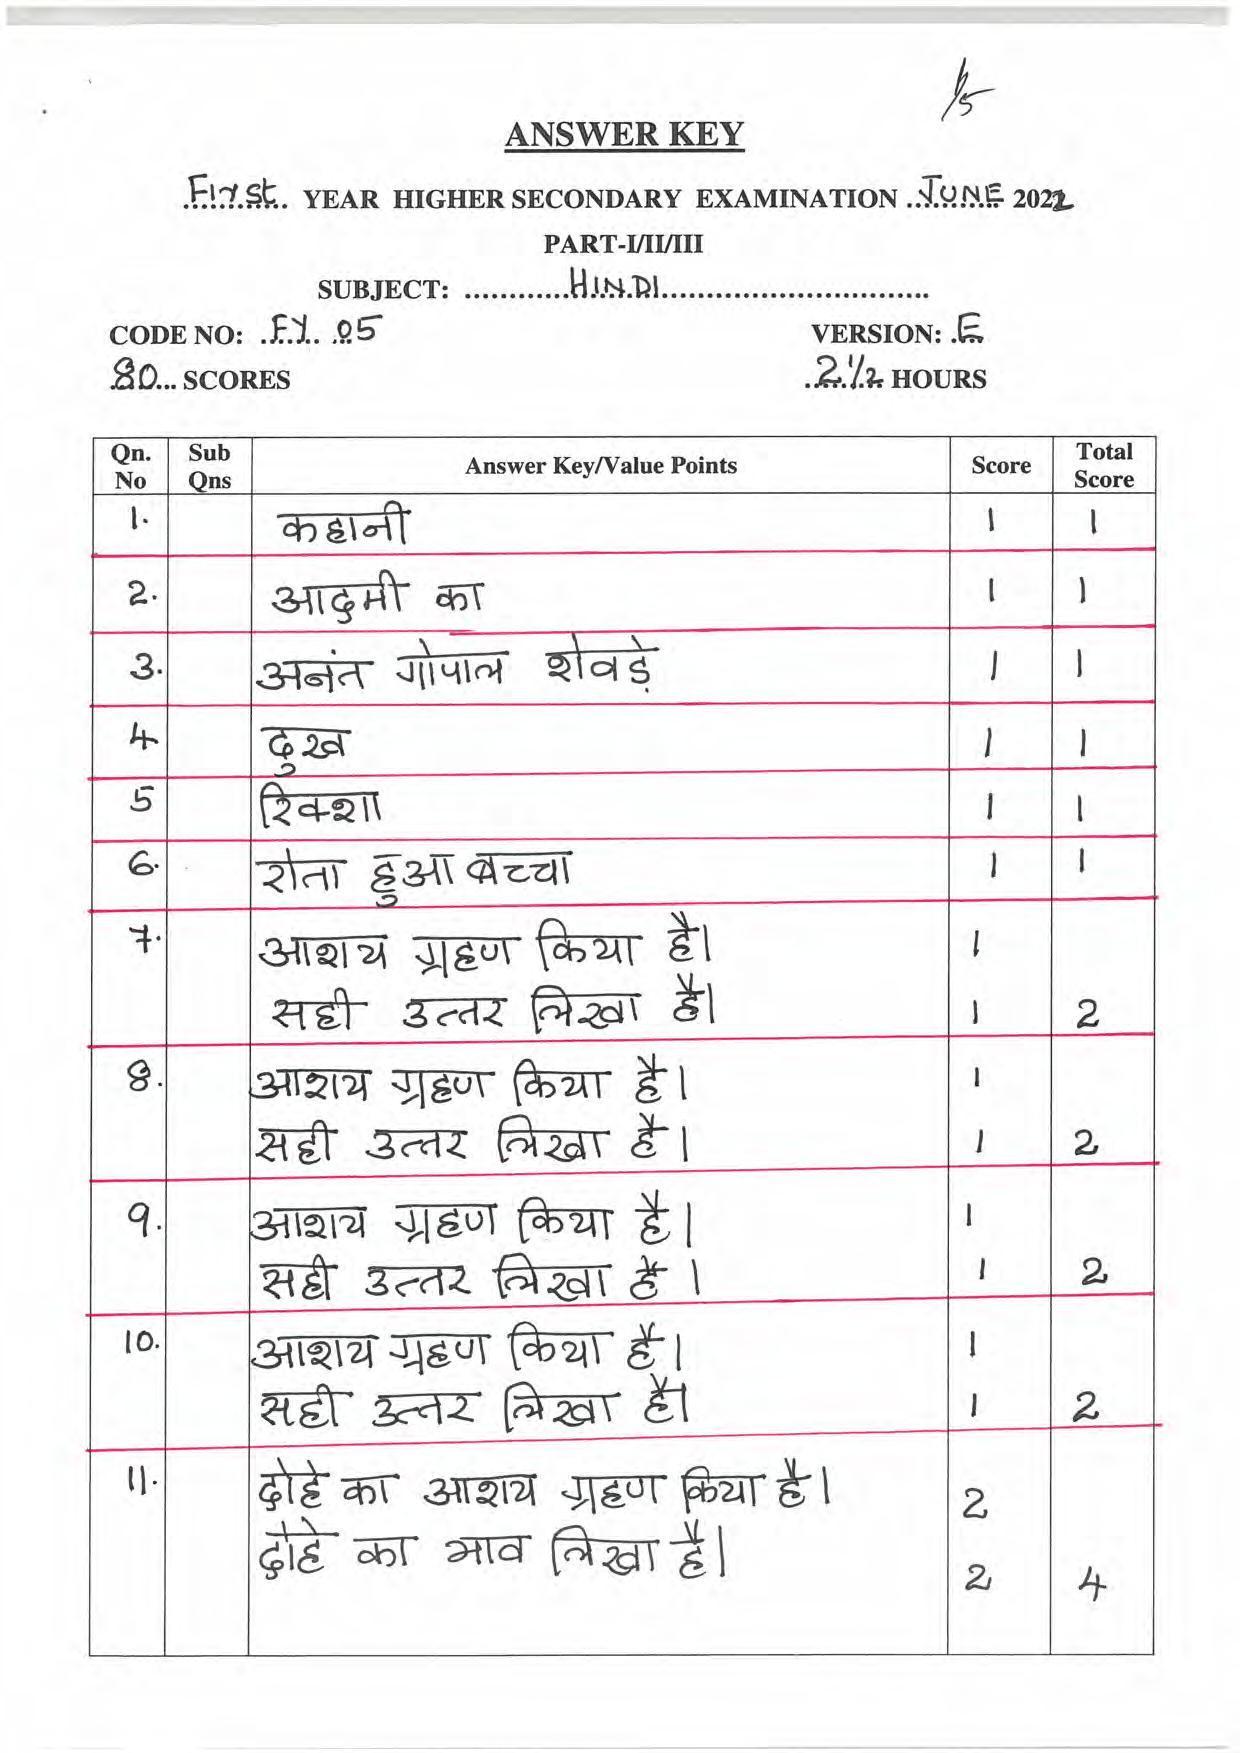 1/5
ANSWER KEY
First YEAR HIGHER SECONDARY EXAMINATION JUNE 2022
PART-I/II/III
SUBJECT: HINDI
CODE NO: FY 05 VERSION: E
80 SCORES 2½ HOURS
Qn. No Sub Qns Answer Key/Value Points Score Total Score
1. कहानी 1 1
2. आदमी का 1 1
3. अनंत गोपाल शेवड़े 1 1
4 दुख 1 1
5 रिक्शा 1 1
6. रोता हुआ बच्चा 1 1
7. आशय ग्रहण किया है। 1
सही उत्तर लिखा है। 1 2
8. आशय ग्रहण किया है। 1
सही उत्तर लिखा है। 1 2
9. आशय ग्रहण किया है। 1
सही उत्तर लिखा है। 1 2
10. आशय ग्रहण किया है। 1
सही उत्तर लिखा है। 1 2
11. दोहे का आशय ग्रहण किया है। 2
दोहे का भाव लिखा है। 2 4